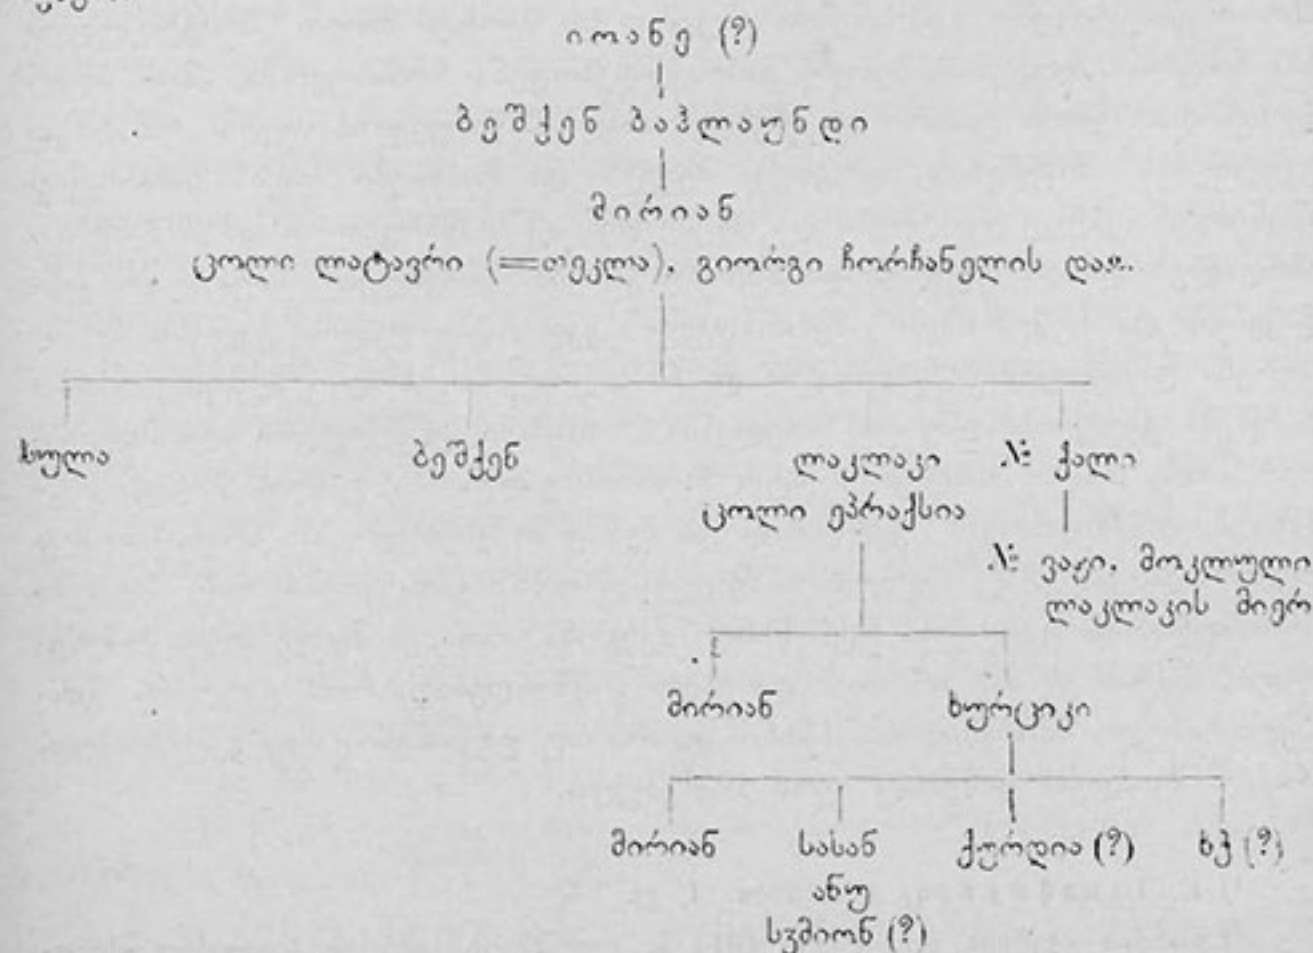 იოანე (?)
ბეშქენ ბაჰლაუნდი
მირიან
ცოლი ლატავრი (=თეკლა), გიორგი ჩორჩანელის და.
სულა ბეშქენ ლაკლაკი N: ქალი
ცოლი ეპრაქსია
N: ვაჟი, მოკლული
ლაკლაკის მიერ
მირიან ხურციკი
მირიან სასან ქურდია (?) ხჭ (?)
ანუ
სჳმიონ (?)